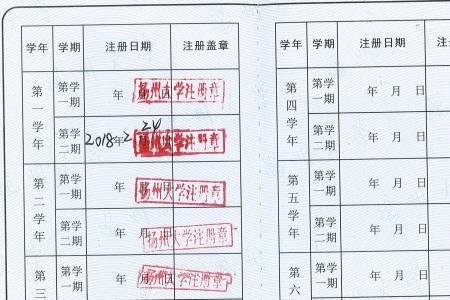 学年 学期 注册日期 注册盖章
第一学年 第学一期 年 月 日 扬州大学注册章
第学二期 2018年2 24 扬州大学注册章
第二学年 第学一期 年 月 日 扬州大学注册章
第学二期 年 月 日 扬州大学注册章
第三 第学一期 年 月 日 扬州大学注册章
学年 学期 注册日期 注
第四学年 第学一期 年 月 日
第学二期 年 月 日
第五学年 第学一期 年 月 日
第学二期 年 月 日
第六 第学一期 年 月 日